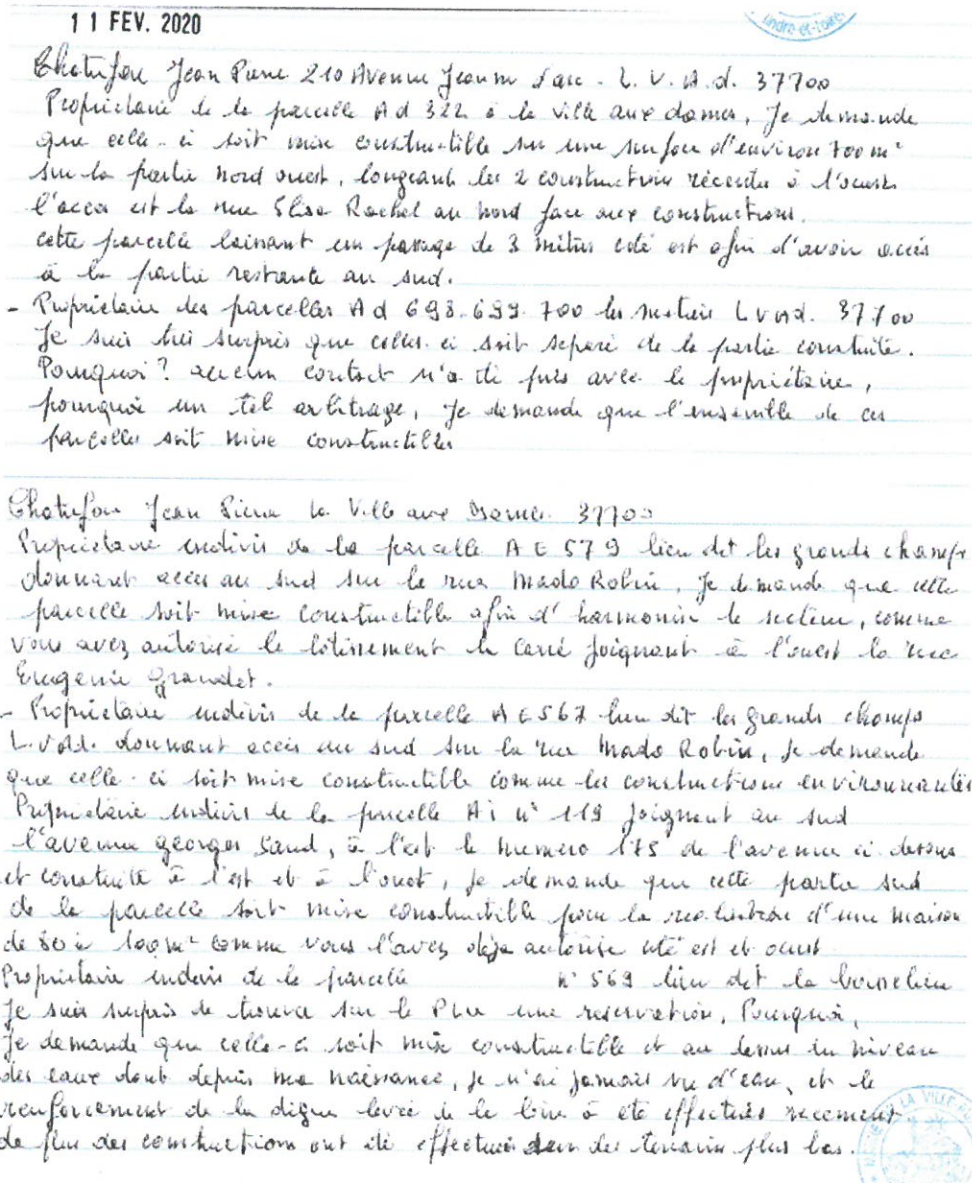 11 FEV. 2020
Indre-et-Loire
Jean Pierre 210 Avenue Jeanne d'arc - L. V. A. d. 37700
Propriétaire de la parcelle Ad 322 à la ville aux dames, Je demande
que celle-ci soit mise constructible sur une surface d'environ 700 m²
sur la partie nord ouest, longeant les 2 constructions récentes à l'ouest
l'accès est la rue Elisa Rachel au nord face aux constructions.
cette parcelle laissant un passage de 3 mètres coté est afin d'avoir accès
à la partie restante au sud.
- Propriétaire des parcelles Ad 698-699-700 les L v ad. 37700
Je suis très surpris que celles-ci soit séparé de la partie construite.
Pourquoi ? aucun contact n'a été pris avec le propriétaire,
pourquoi un tel arbitrage, Je demande que l'ensemble de ces
parcelles soit mise constructibles
Jean Pierre la Ville aux Dames 37700
Propriétaire indivis de la parcelle AE 579 lieu dit les grands champs
donnant accès au sud sur la rue Mado Robin, Je demande que cette
parcelle soit mise constructible afin d'harmoniser le secteur, comme
vous avez autorisé le lotissement le Carré joignant à l'ouest la rue
Eugenie Grandet.
- Propriétaire indivis de la parcelle AE 567 lieu dit les Grands champs
L.Vad. donnant accès au sud sur la rue Mado Robin, Je demande
que celle-ci soit mise constructible comme les constructions environnantes
Propriétaire indivis de la parcelle Ai n° 119 joignant au sud
l'avenue georges Sand, à l'est le numero 175 de l'avenue ci dessus
et construite à l'est et à l'ouest, je demande que cette partie sud
de la parcelle soit mise constructible pour la réalisation d'une maison
de 80 à 100 m² comme vous l'avez déja autorisé coté est et ouest
Propriétaire indivis de la parcelle n° 569 lieu dit la
Je suis surpris de trouver sur le Plu une reservation, Pourquoi,
Je demande que celle-ci soit mise constructible et au dessus du niveau
des eaux dont depuis ma naissance, je n'ai jamais vu d'eau, et le
renforcement de la digue levée de la loire à été effectués recement
de plus des constructions ont été effectués dans des terrains plus bas.
LA VILLE